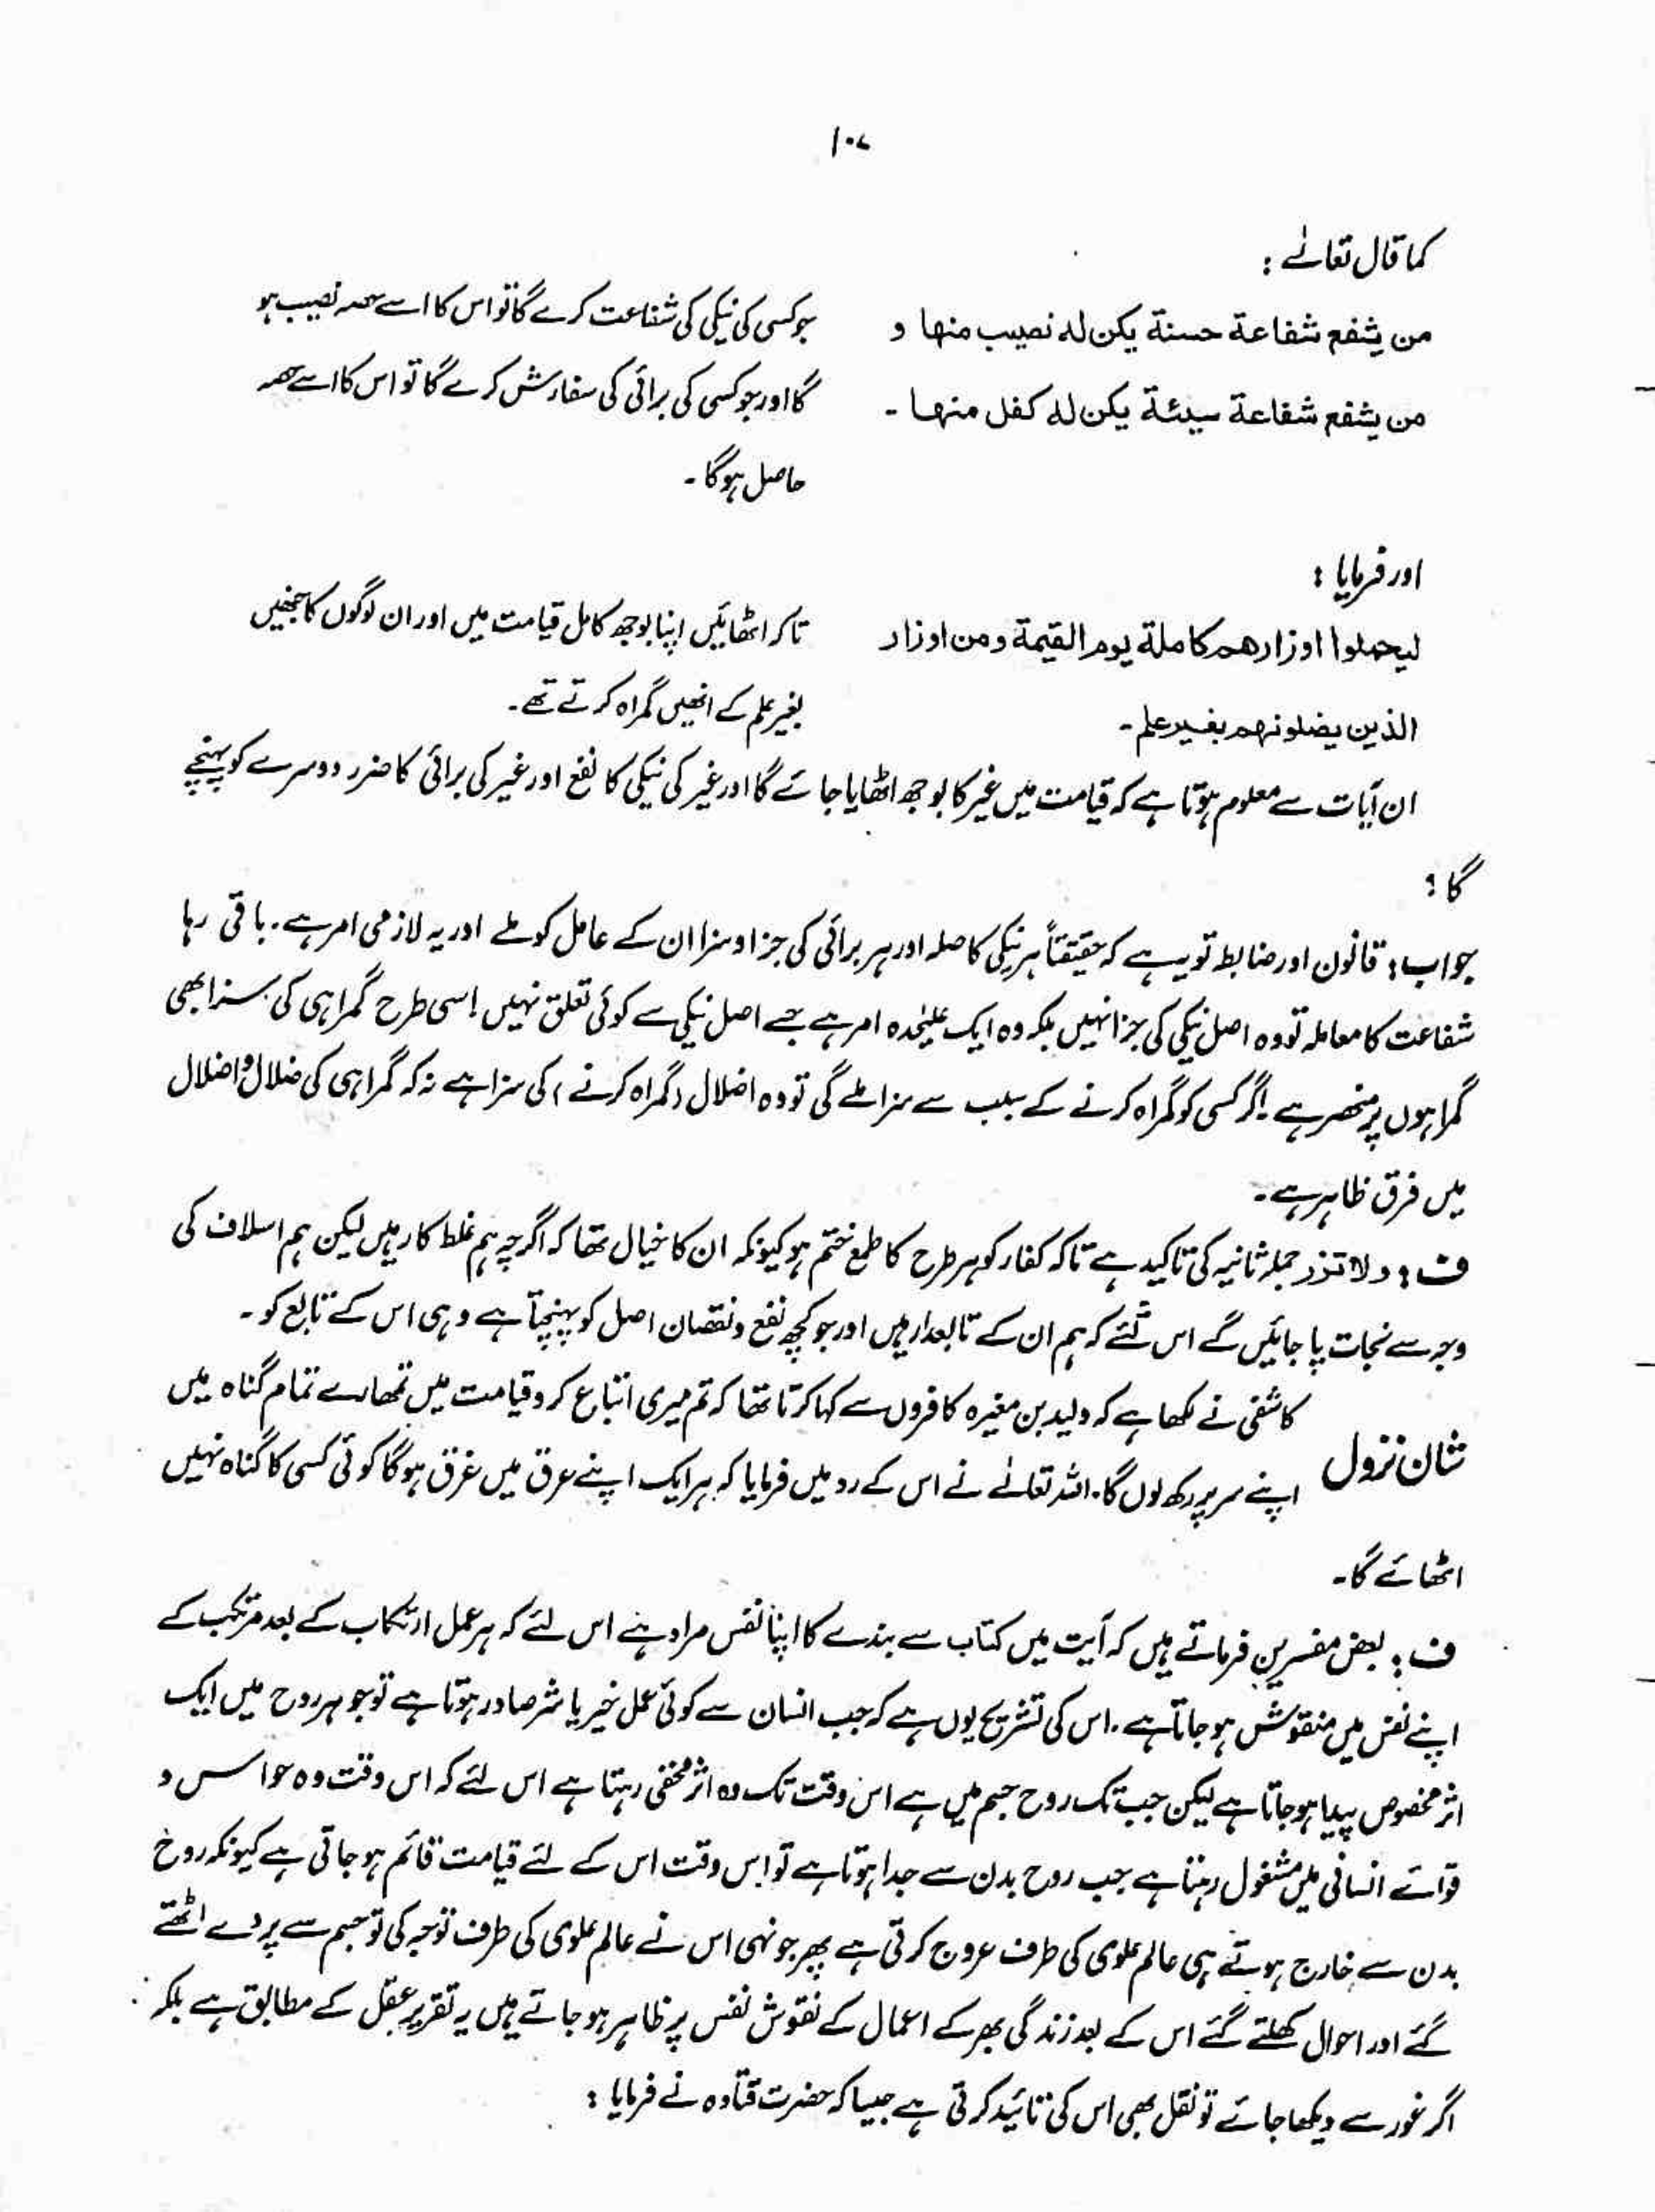 ۱۰۷
کما قال تعالٰے :
من یشفع شفاعة حسنة یکن له نصیب منها و
من یشفع شفاعة سیئة یکن له کفل منها ۔
جو کسی کی نیکی کی شفاعت کرے گا تو اس کا اسے حصہ نصیب ہو
گا اور جو کسی کی برائی کی سفارش کرے گا تو اس کا اسے حصہ
حاصل ہوگا ۔
اور فرمایا :
لیحملوا اوزارهم کاملة یوم القیمة ومن اوزار
الذین یضلونهم بغیر علم ۔
تاکہ اٹھائیں اپنا بوجھ کامل قیامت میں اور ان لوگوں کا جنھیں
بغیر علم کے انھیں گمراہ کرتے تھے ۔
ان آیات سے معلوم ہوتا ہے کہ قیامت میں غیر کا بوجھ اٹھایا جائے گا اور غیر کی نیکی کا نفع اور غیر کی برائی کا ضرر دوسرے کو پہنچے
گا ؟
جواب : قانون اور ضابطہ تو یہ ہے کہ حقیقتاً ہر نیکی کا صلہ اور ہر برائی کی جزا و سزا ان کے عامل کو ملے اور یہ لازمی امر ہے ۔ باقی رہا
شفاعت کا معاملہ تو وہ اصل نیکی کی جزا نہیں بلکہ وہ ایک علیٰحدہ امر ہے جسے اصل نیکی سے کوئی تعلق نہیں ۔ اسی طرح گمراہی کی سزا بھی
گمراہوں پر منحصر ہے ۔ اگر کسی کو گمراہ کرنے کے سبب سے سزا ملے گی تو وہ اضلال (گمراہ کرنے) کی سزا ہے نہ کہ گمراہی کی ضلال و اضلال
میں فرق ظاہر ہے ۔
ف : ولا تزر جملہ ثانیہ کی تاکید ہے تاکہ کفار کو ہر طرح کا طمع ختم ہو کیونکہ ان کا خیال تھا کہ اگرچہ ہم غلط کار ہیں لیکن ہم اسلاف کی
وجہ سے نجات پا جائیں گے اس لئے کہ ہم ان کے تابعدار ہیں اور جو کچھ نفع و نقصان اصل کو پہنچتا ہے وہی اس کے تابع کو ۔
شان نزول کاشفی نے لکھا ہے کہ ولید بن مغیرہ کافروں سے کہا کرتا تھا کہ تم میری اتباع کرو قیامت میں تمھارے تمام گناہ میں
اپنے سر پر رکھ لوں گا ۔ اللہ تعالٰے نے اس کے رد میں فرمایا کہ ہر ایک اپنے عرق میں غرق ہوگا کوئی کسی کا گناہ نہیں
اٹھائے گا ۔
ف : بعض مفسرین فرماتے ہیں کہ آیت میں کتاب سے بندے کا اپنا نفس مراد ہے اس لئے کہ ہر عمل ارتکاب کے بعد مرتکب کے
اپنے نفس میں منقوش ہو جاتا ہے ۔ اس کی تشریح یوں ہے کہ جب انسان سے کوئی عمل خیر یا شر صادر ہوتا ہے تو جوہر روح میں ایک
اثر مخصوص پیدا ہو جاتا ہے لیکن جب تک روح جسم میں ہے اس وقت تک وہ اثر مخفی رہتا ہے اس لئے کہ اس وقت وہ حواس و
قوائے انسانی میں مشغول رہتا ہے جب روح بدن سے جدا ہوتا ہے تو اس وقت اس کے لئے قیامت قائم ہو جاتی ہے کیونکہ روح
بدن سے خارج ہوتے ہی عالم علوی کی طرف عروج کرتی ہے پھر جونہی اس نے عالم علوی کی طرف توجہ کی تو جسم سے پردے اٹھتے
گئے اور احوال کھلتے گئے اس کے بعد زندگی بھر کے اعمال کے نقوش نفس پر ظاہر ہو جاتے ہیں یہ تقریر عقل کے مطابق ہے بلکہ
اگر غور سے دیکھا جائے تو نقل بھی اس کی تائید کرتی ہے جیسا کہ حضرت قتادہ نے فرمایا :